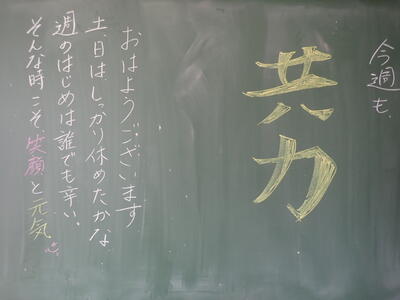 今週も、
共力
おはようございます
土、日はしっかり休めたかな
週のはじめは誰でも辛い、
そんな時こそ笑顔と元気